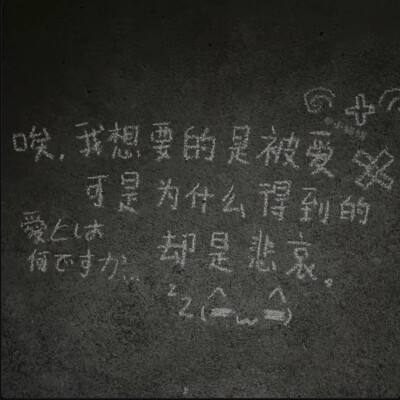 唉，我想要的是被爱
可是为什么得到的
却是悲哀。
愛とは
何ですか...
zz(^_w^_)